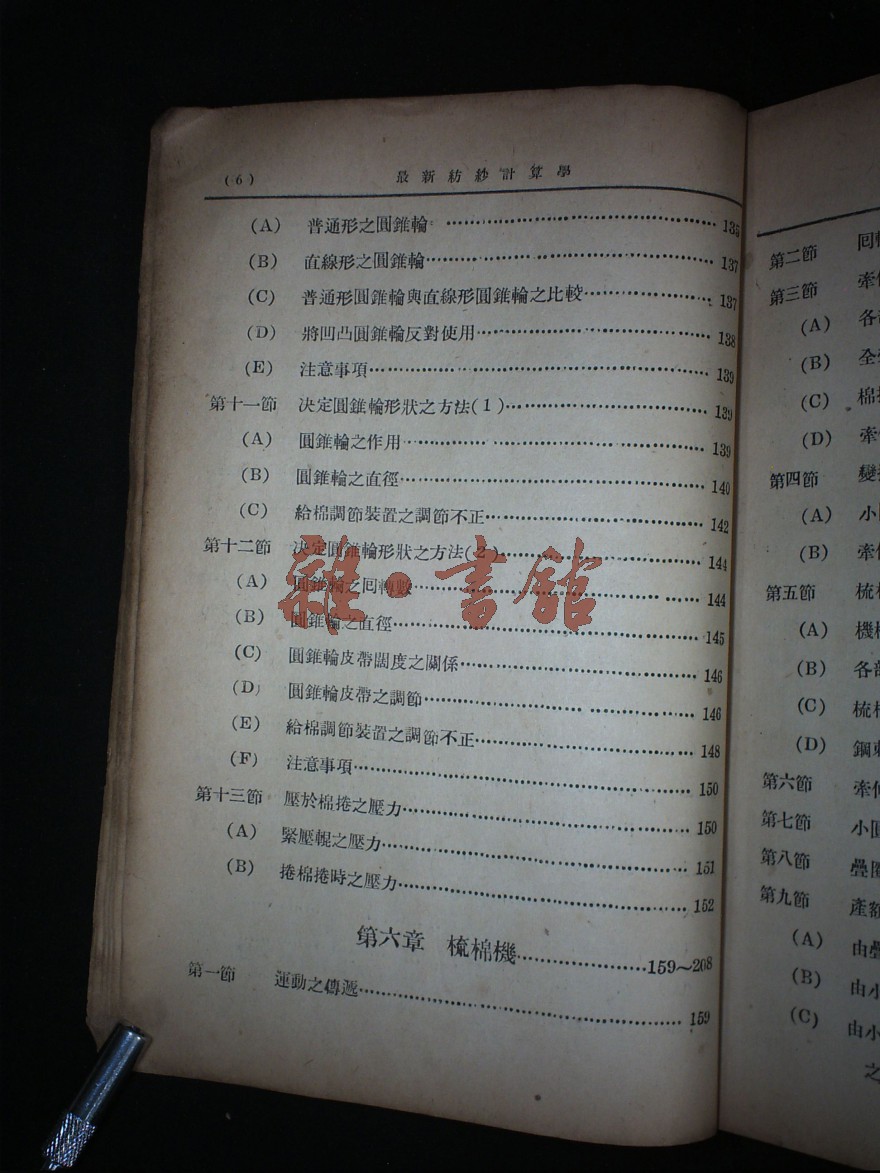 (6) 最新紡紗計算學
(A) 普通形之圓錐輪 135
(B) 直線形之圓錐輪 137
(C) 普通形圓錐輪與直線形圓錐輪之比較 137
(D) 將凹凸圓錐輪反對使用 138
(E) 注意事項 139
第十一節 決定圓錐輪形狀之方法(1) 139
(A) 圓錐輪之作用 139
(B) 圓錐輪之直徑 140
(C) 給棉調節裝置之調節不正 142
第十二節 決定圓錐輪形狀之方法(2) 144
(A) 圓錐輪之囘轉數 144
(B) 圓錐輪之直徑 145
(C) 圓錐輪皮帶闊度之關係 146
(D) 圓錐輪皮帶之調節 146
(E) 給棉調節裝置之調節不正 148
(F) 注意事項 150
第十三節 壓於棉捲之壓力 150
(A) 緊壓輥之壓力 151
(B) 捲棉捲時之壓力 152
第六章 梳棉機 159～208
第一節 運動之傳遞 159
雜·書館
第二節 囘
第三節 牽
(A) 各
(B) 全
(C) 棉
(D) 牽
第四節 變
(A) 小
(B) 牽
第五節 梳
(A) 機
(B) 各
(C) 梳
(D) 鋼
第六節 牽
第七節 小
第八節 疊
第九節 產額
(A) 由
(B) 由小
(C) 由小
之